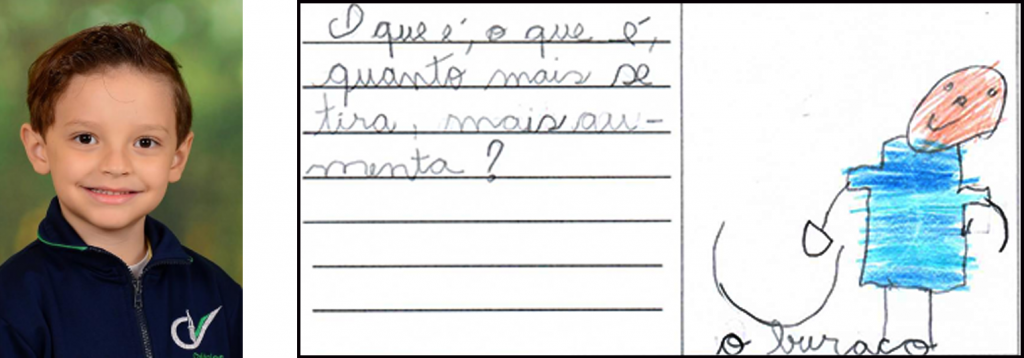 O que é, o que é,
quanto mais se
tira, mais au-
menta?
o buraco